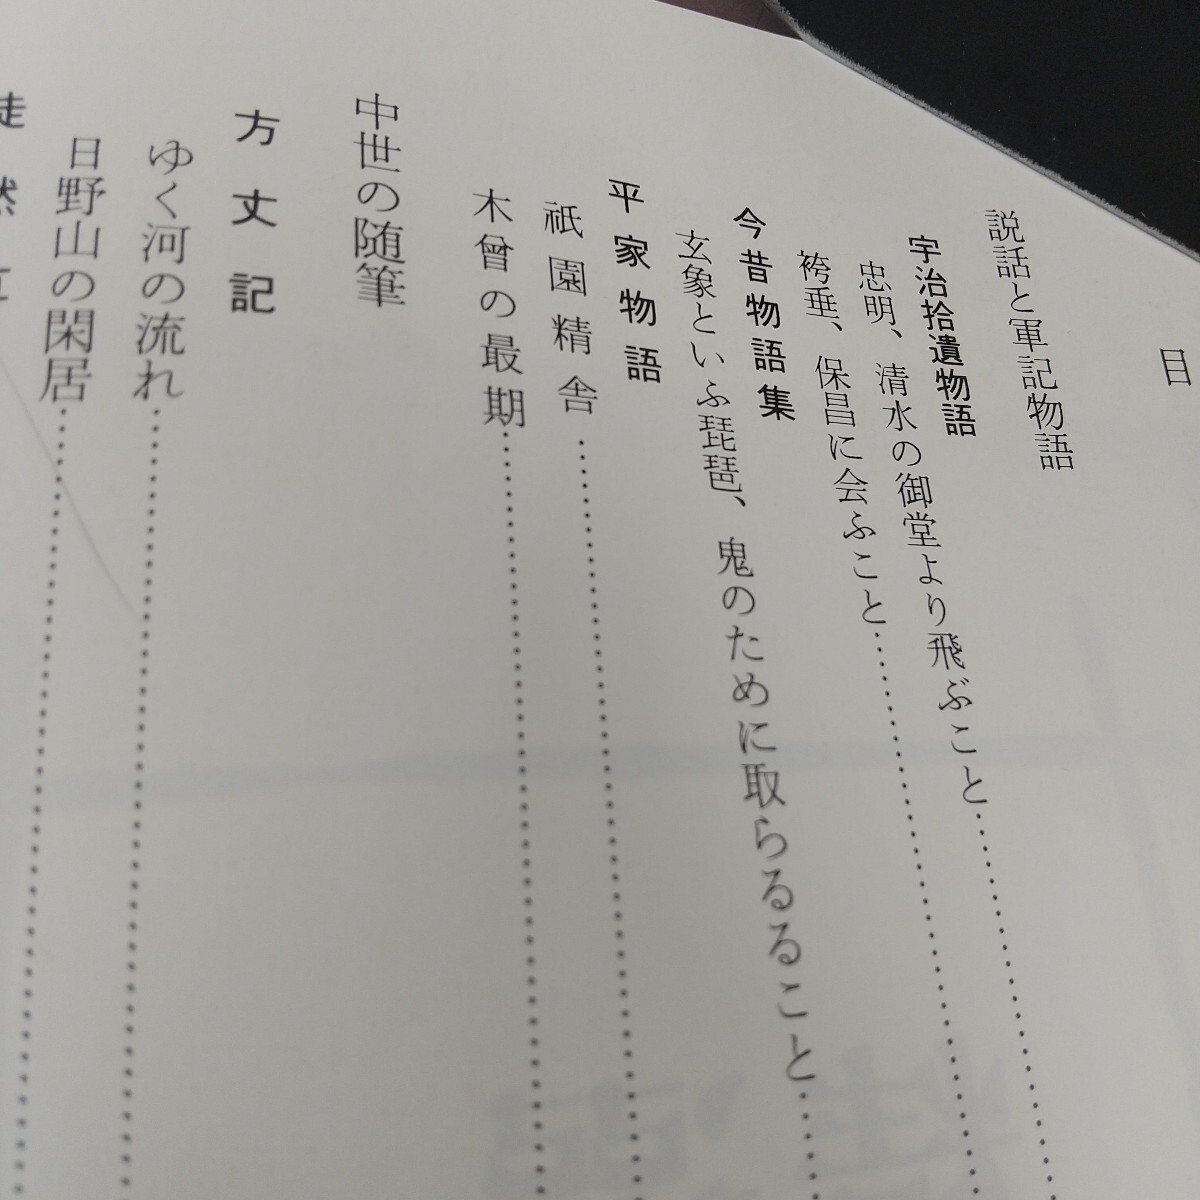 目
説話と軍記物語
宇治拾遺物語
忠明、清水の御堂より飛ぶこと
袴垂、保昌に会ふこと
今昔物語集
玄象といふ琵琶、鬼のために取らるること
平家物語
祇園精舎
木曾の最期
中世の随筆
方丈記
ゆく河の流れ
日野山の閑居
徒然